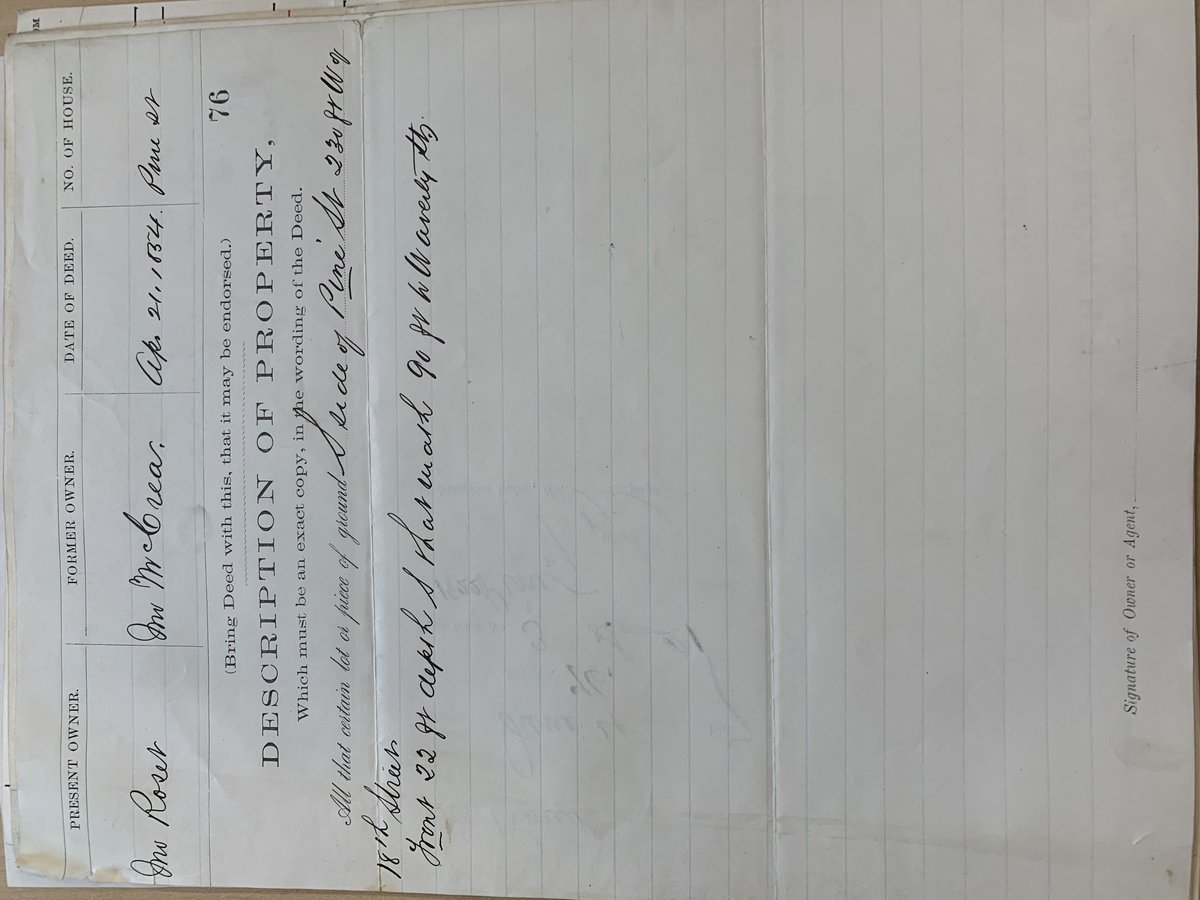 PRESENT OWNER. FORMER OWNER. DATE OF DEED. NO. OF HOUSE.
Jno Roset Jno McCrea. Ap. 21, 1854. Pine St
(Bring Deed with this, that it may be endorsed.) 76
DESCRIPTION OF PROPERTY,
Which must be an exact copy, in the wording of the Deed.
All that certain lot or piece of ground S side of Pine St 230 ft W of
18th Street
Front 22 ft depth S that width 90 ft to Waverly St.
Signature of Owner or Agent,